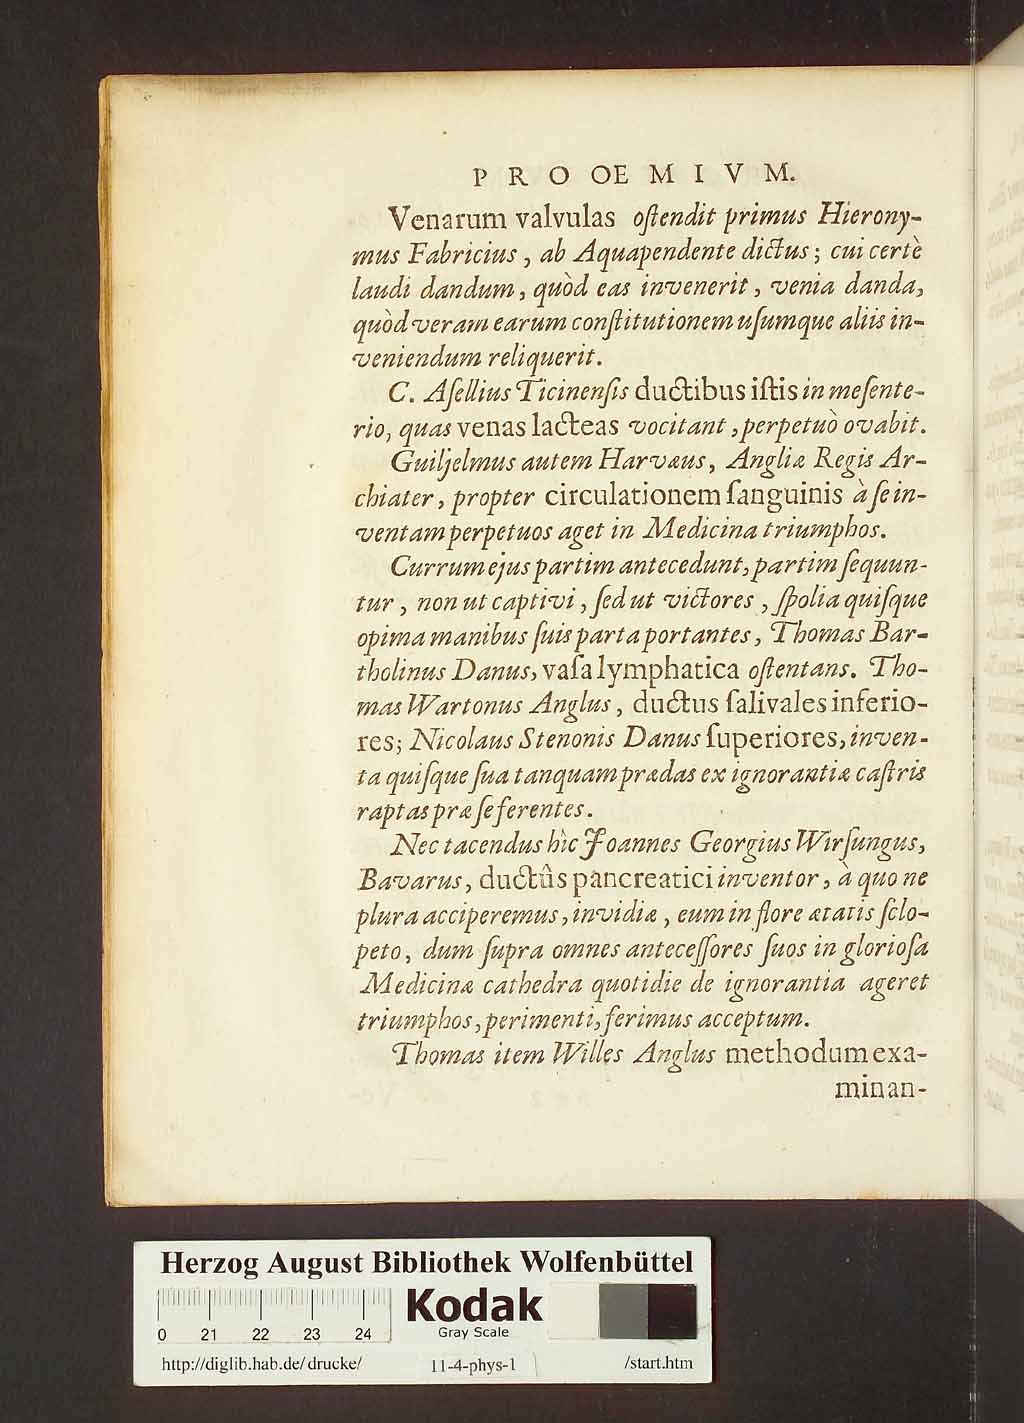 P R O OE M I V M.
Venarum valvulas oſtendit primus Hierony-
mus Fabricius, ab Aquapendente dictus; cui certè
laudi dandum, quòd eas invenerit, venia danda,
quòd veram earum conſtitutionem uſumque aliis in-
veniendum reliquerit.
C. Aſellius Ticinenſis ductibus iſtis in meſente-
rio, quas venas lacteas vocitant, perpetuò ovabit.
Guiljelmus autem Harvæus, Angliæ Regis Ar-
chiater, propter circulationem ſanguinis à ſe in-
ventam perpetuos aget in Medicina triumphos.
Currum ejus partim antecedunt, partim ſequun-
tur, non ut captivi, ſed ut victores, ſpolia quiſque
opima manibus ſuis parta portantes, Thomas Bar-
tholinus Danus, vaſa lymphatica oſtentans. Tho-
mas Wartonus Anglus, ductus ſalivales inferio-
res; Nicolaus Stenonis Danus ſuperiores, inven-
ta quiſque ſua tanquam prædas ex ignorantiæ caſtris
raptas præ ſe ferentes.
Nec tacendus hîc Joannes Georgius Wirſungus,
Bavarus, ductûs pancreatici inventor, à quo ne
plura acciperemus, invidiæ, eum in flore ætatis ſclo-
peto, dum ſupra omnes anteceſſores ſuos in glorioſa
Medicinæ cathedra quotidie de ignorantia ageret
triumphos, perimenti, ferimus acceptum.
Thomas item Willes Anglus methodum exa-
minan-
Herzog August Bibliothek Wolfenbüttel
0 21 22 23 24
Kodak
Gray Scale
http://diglib.hab.de/drucke/ 11-4-phys-1 /start.htm